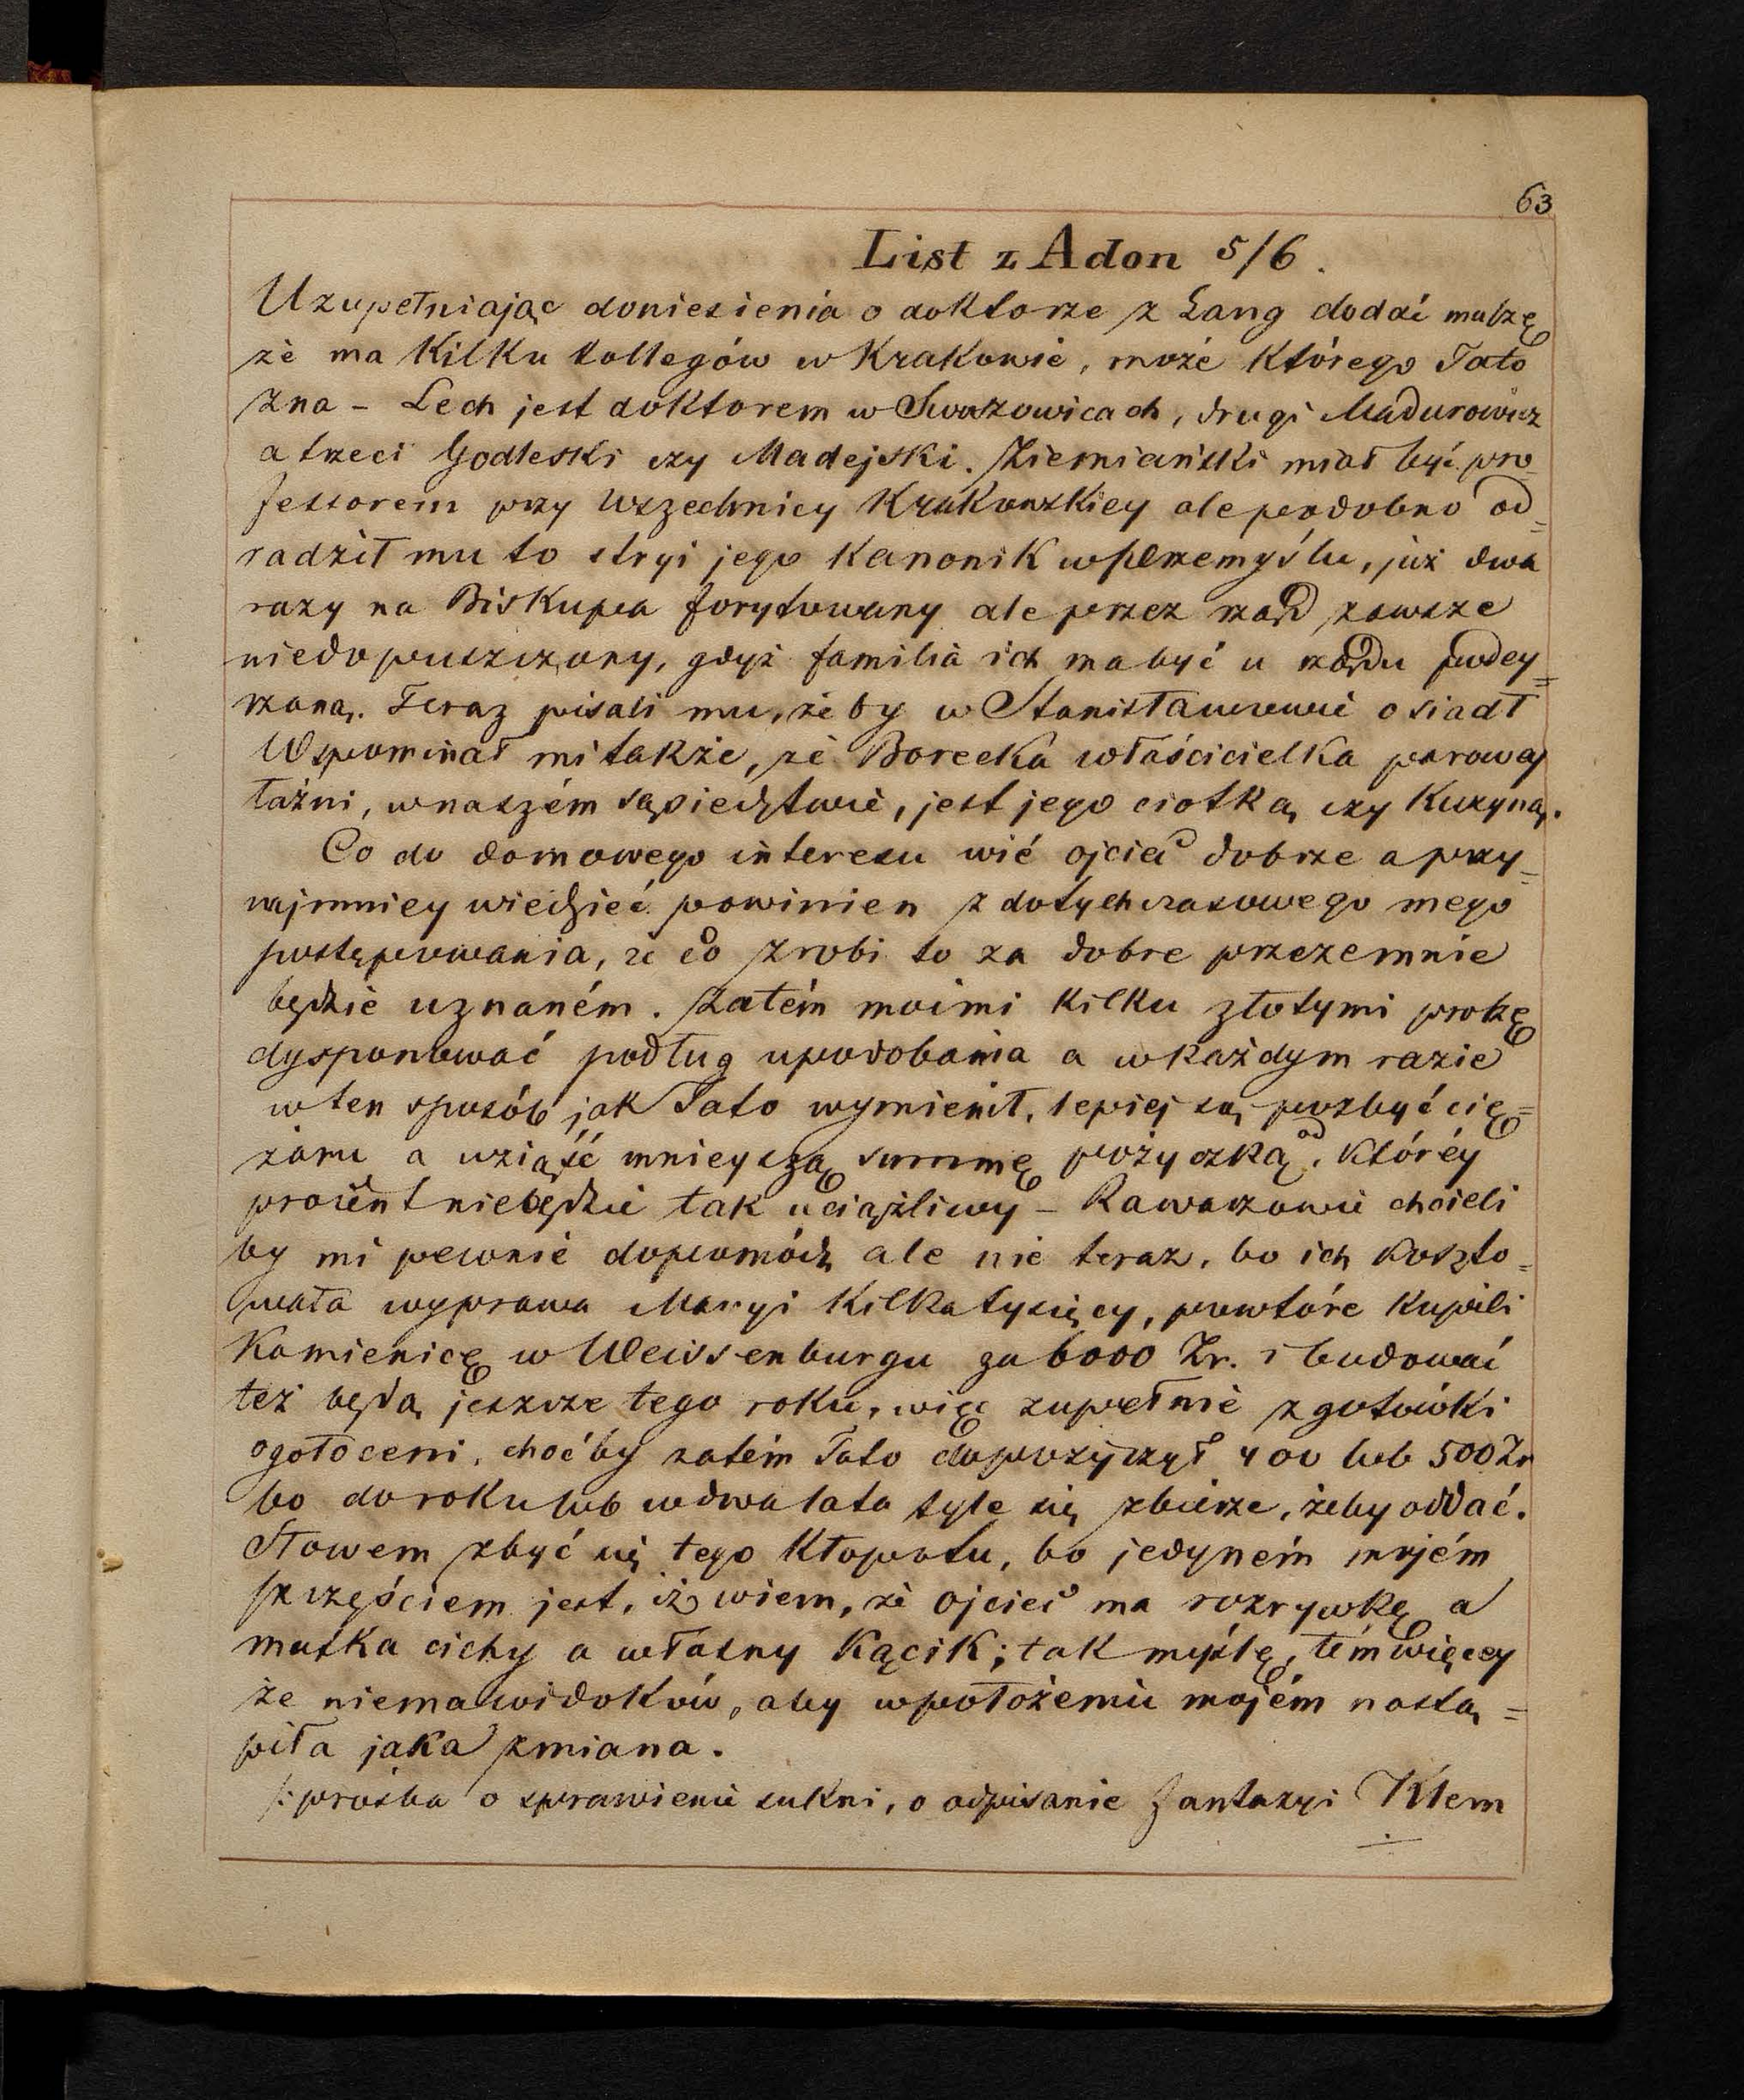 63
List z Adon 5/6.
Uzupełniając doniesienia o doktorze z Lang dodać muszę
że ma kilku kollegów w Krakowie, może którego Tato
zna - Lech jest doktorem w Swoszowicach, drugi Madurowicz
a trzeci Godleski czy Madejski. Ziemiański miał być pro=
fessorem przy Wszechnicy Krakowskiey ale podobno od=
radził mu to stryi jego Kanonik w Przemyślu, już dwa
razy na Biskupa forytowany ale przez rząd zawsze
niedopuszczony, gdyż familia ich ma być u rządu podey=
rzaną. Teraz pisali mu, żeby w Stanisławowie osiadł
Wspominał mi także, że Borecka właścicielka parowej
łaźni, w naszém sąsiedztwie, jest jego ciotką czy Kuzyną.
Co do domowego interesu wié ojciec dobrze a przy=
najmniey wiedzieć powinien z dotychczasowego mego
postępowania, że co zrobi to za dobre przezemnie
będzie uznaném. Zatém moimi kilku złotymi proszę
dysponować podług upodobania a w każdym razie
w ten sposób jak Tato wymienił, lepiej są pozbyć cię=
żaru a wziąść mnieyszą summę pożyczką, od któréy
procent niebędzie tak uciążliwy - Rawarzowie chcieli
by mi pewnie dopomódz ale nie teraz, bo ich koszto=
wała wyprawa Maryi kilka tysięcy, powtóre kupili
Kamienicę w Weissenburgu za 6000 Zr. i budować
też będą jeszcze tego roku, więc zupełnie z gotówki
ogołoceni, choćby zatém Tato dopożyczył 400 lub 500 Zr
bo do roku lub w dwa lata tyle się zbierze, żeby oddać.
Słowem zbyć się tego kłopotu, bo jedyném mojém
szczęściem jest, iż wiem, że ojciec ma rozrywkę a
matka cichy a własny kącik; tak myślę, tém więcey
że niema widoków, aby w położeniu mojém nastą=
piła jaka zmiana.
/: prośba o sprawienie sukni, o odpisanie Fantazyi Klem